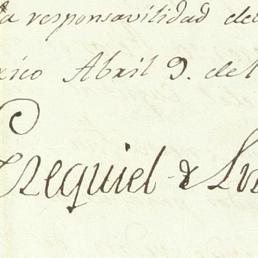 la responsavilidad del
xico Abril 9. de
Ezequiel